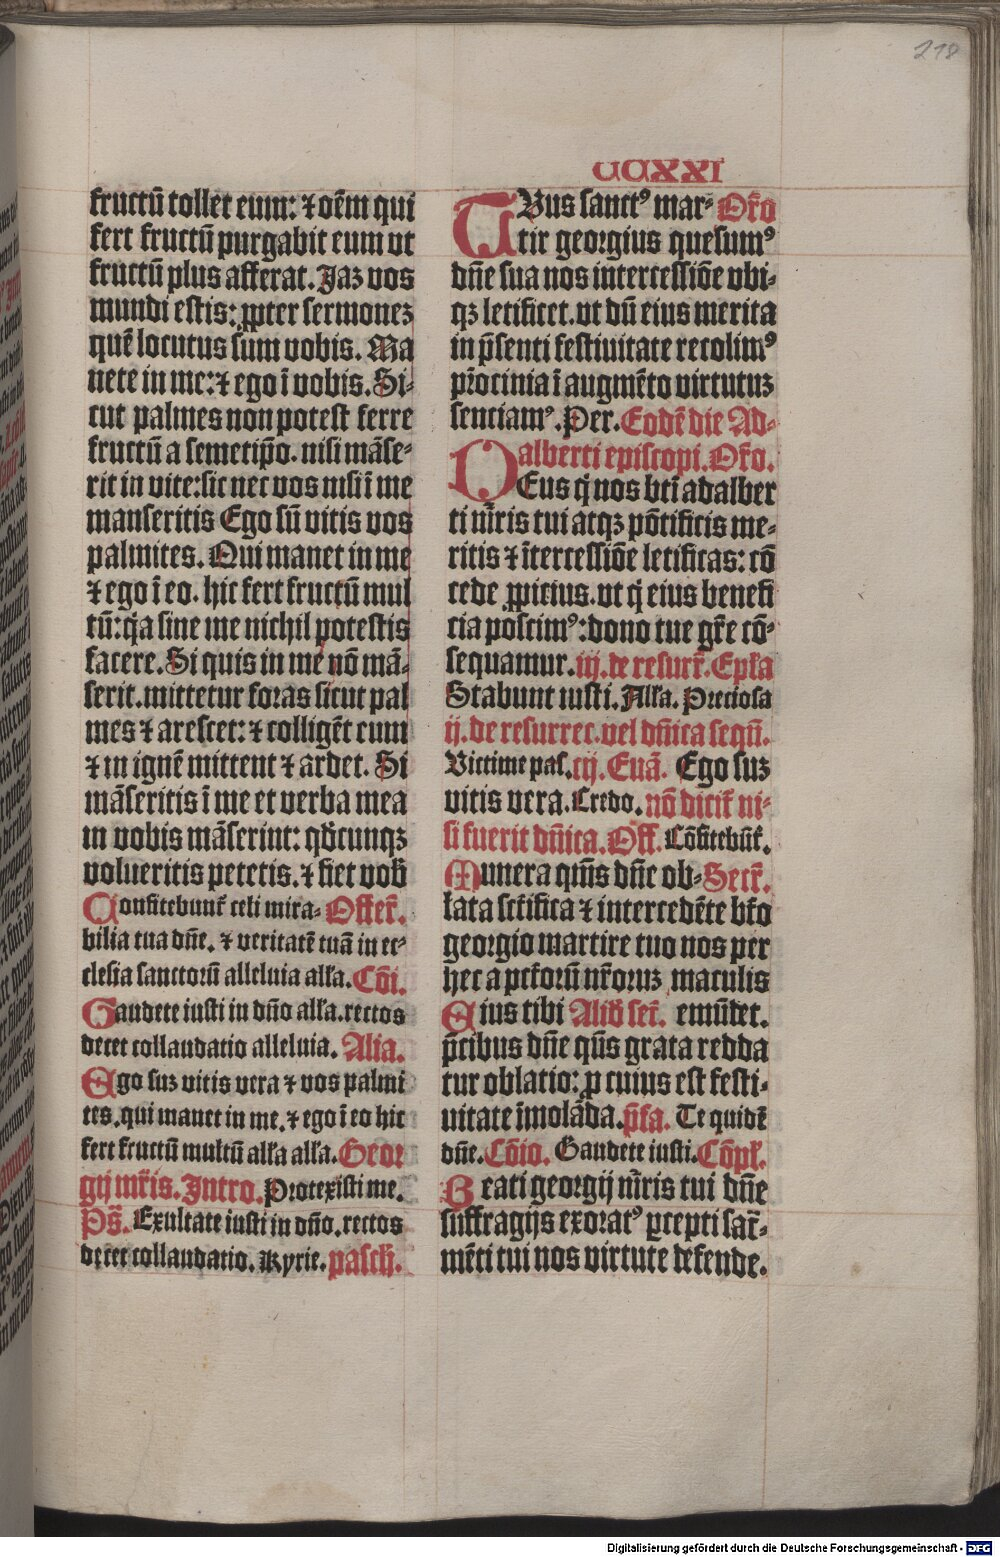 218
CCXXI
fructū tollet eum: ⁊ oēm qui
fert fructū purgabit eum ut
fructū plus afferat. Jaꝫ vos
mundi estis: ꝓpter sermoneꝫ
quē locutus sum vobis. Ma
nete in me: ⁊ ego ī vobis. Si-
cut palmes non potest ferre
fructū a semetip̄o. nisi māse-
rit in vite: sic nec vos nisi ī me
manseritis Ego sū vitis vos
palmites. Qui manet in me
⁊ ego ī eo. hic fert fructū mul
tū: q̄a sine me nichil potestis
facere. Si quis in me nō mā-
serit. mittetur foras sicut pal
mes ⁊ arescet: ⁊ colligēt eum
⁊ in ignē mittent ⁊ ardet. Si
māseritis ī me et verba mea
in vobis māserint: qd̄cunqꝫ
volueritis petetis. ⁊ fiet vob̄
Confitebunt̄ celi mira- Offer̄.
bilia tua dn̄e. ⁊ veritatē tuā in ec-
clesia sanctorū alleluia all̄a. Cōi.
Gaudete iusti in dn̄o all̄a. rectos
decet collaudatio alleluia. Alia.
Ego suꝫ vitis vera ⁊ vos palmi
tes. qui manet in me. ⁊ ego ī eo hic
fert fructū multū all̄a all̄a. Geor
gij mr̄is. Intro. Protexisti me.
Ps̄. Exultate iusti in dn̄o. rectos
decet collaudatio. Kyrie. pasch̄.
TVus sanctꝰ mar- Or̄o
tir georgius quesumꝰ
dn̄e sua nos intercessiōe vbi-
qꝫ letificet. vt dū eius merita
in p̄senti festiuitate recolimꝰ
pr̄ocinia ī augmēto virtutuꝫ
sentiamꝰ. Per. Eodē die Ad-
alberti episcopi. Or̄o.
DEus q̄ nos bt̄i adalber
ti mr̄is tui atqꝫ pōtificis me-
ritis ⁊ īterecessiōe letificas: cō
cede ꝓpicius. vt q̄ eius benefi
cia poscimꝰ: dono tue gr̄e cō-
sequamur. iij. de resurr̄. Epl̄a
Stabunt iusti. All̄a. Preciosa
ij. de resurrec. vel dn̄ica seqū.
Victime pas. iij. Euā. Ego suꝫ
vitis vera. Credo. nō dicit̄ ni-
si fuerit dn̄ica. Off̄. Cōfitebūt̄.
Munera qm̄s dn̄e ob- Secr̄.
lata sct̄ifica ⁊ intercedēte bt̄o
georgio martire tuo nos per
hec a pct̄orū nr̄oruꝫ maculis
Eius tibi Alid̄ secr̄. emūdet.
p̄cibus dn̄e qm̄s grata redda
tur oblatio: ꝓ cuius est festi-
uitate īmolāda. p̄fa. Te quidē
dn̄e. Cōio. Gaudete iusti. Cōpl̄.
Beati georgij mr̄is tui dn̄e
suffragijs exoratꝰ ꝑcepti sacr̄-
mēti tui nos virtute defende.
Digitalisierung gefördert durch die Deutsche Forschungsgemeinschaft - DFG